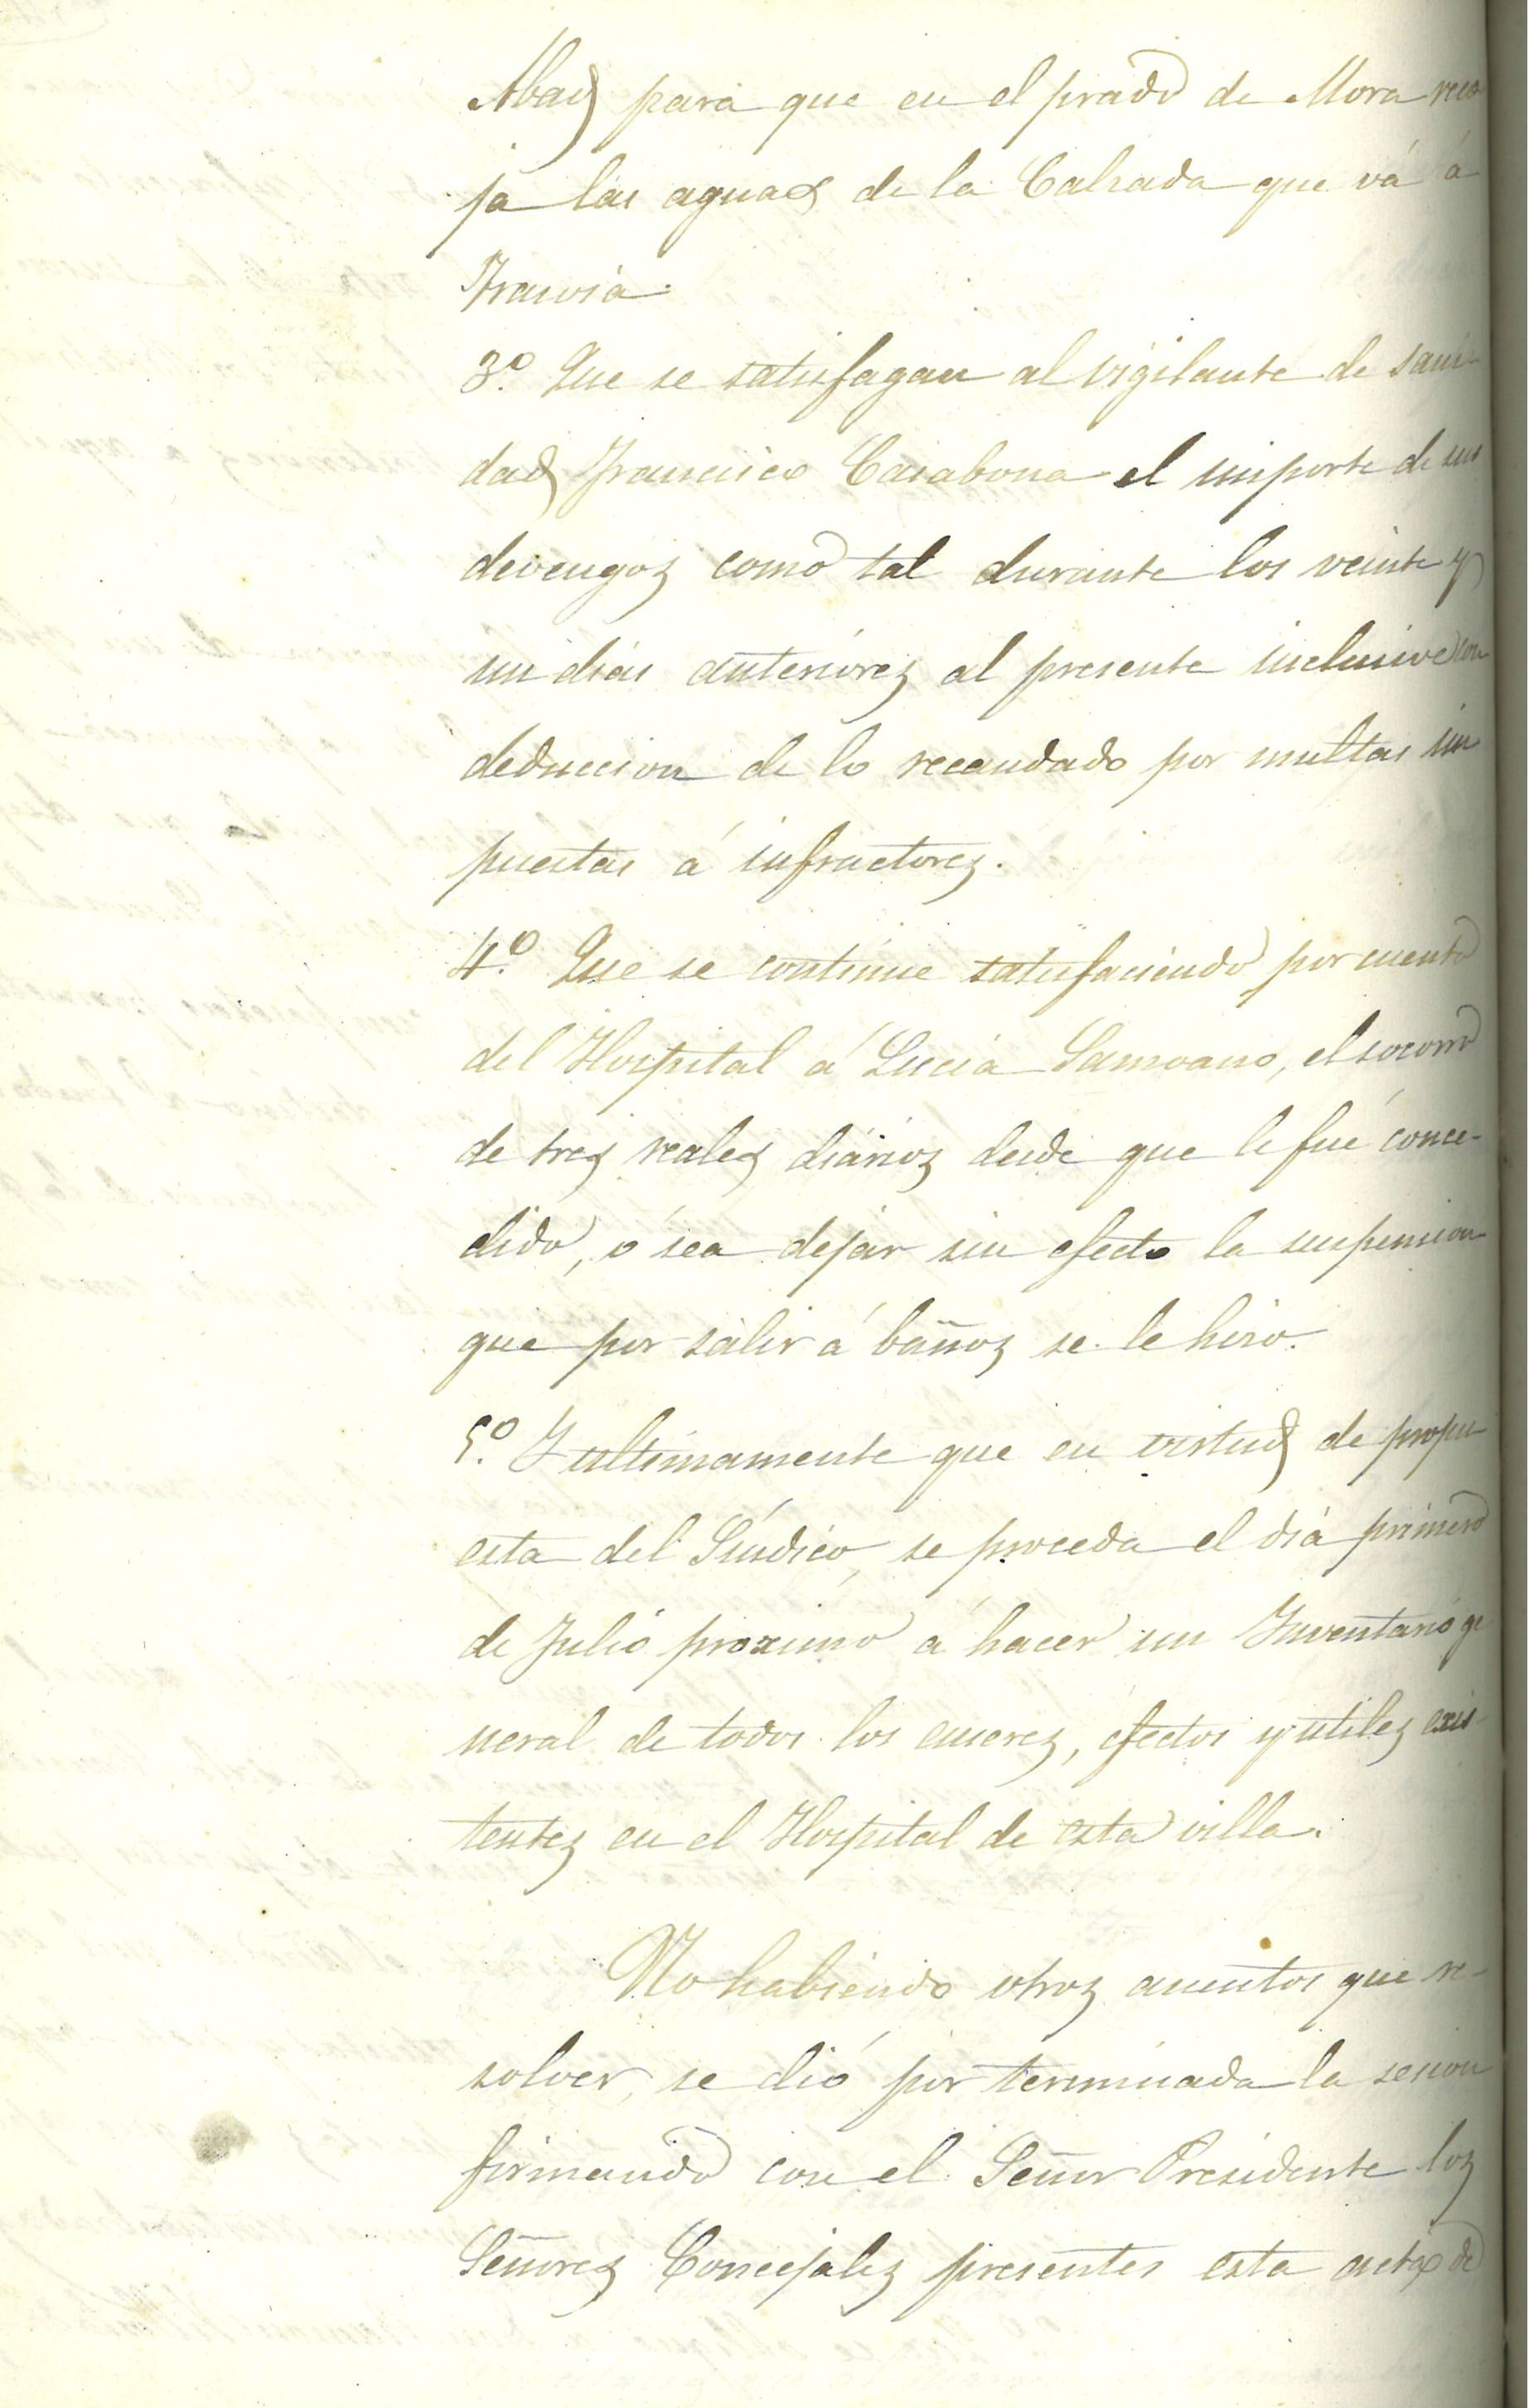 Abad para que en el prado de Mora reco
ja las aguas de la Calzada que vá á
Travia.
3º. Que se satisfagan al vigilante de sani
dad Francisco Casabona el importe de sus
devengos como tal durante los veinte y
un dias anteriores al presente inclusive con
deduccion de lo recaudado por multas im
puestas á infractores.
4º. Que se continue satisfaciendo por cuenta
del Hospital á Lucia Samoano, el socorro
de tres reales diários desde que le fué conce-
dido, ó sea dejar sin efecto la suspension
que por salir á baños se le hizo.
5º. Y ultimamente que en virtud de propu
esta del Síndico, se proceda el dia primero
de Julio proximo á hacer un Inventario ge
neral de todos los enseres, efectos y utiles exis-
tentes en el Hospital de esta villa.
No habiendo otros asuntos que re-
solver, se dió por terminada la sesion
firmando con el Señor Presidente los
Señores Concejales presentes esta acta de